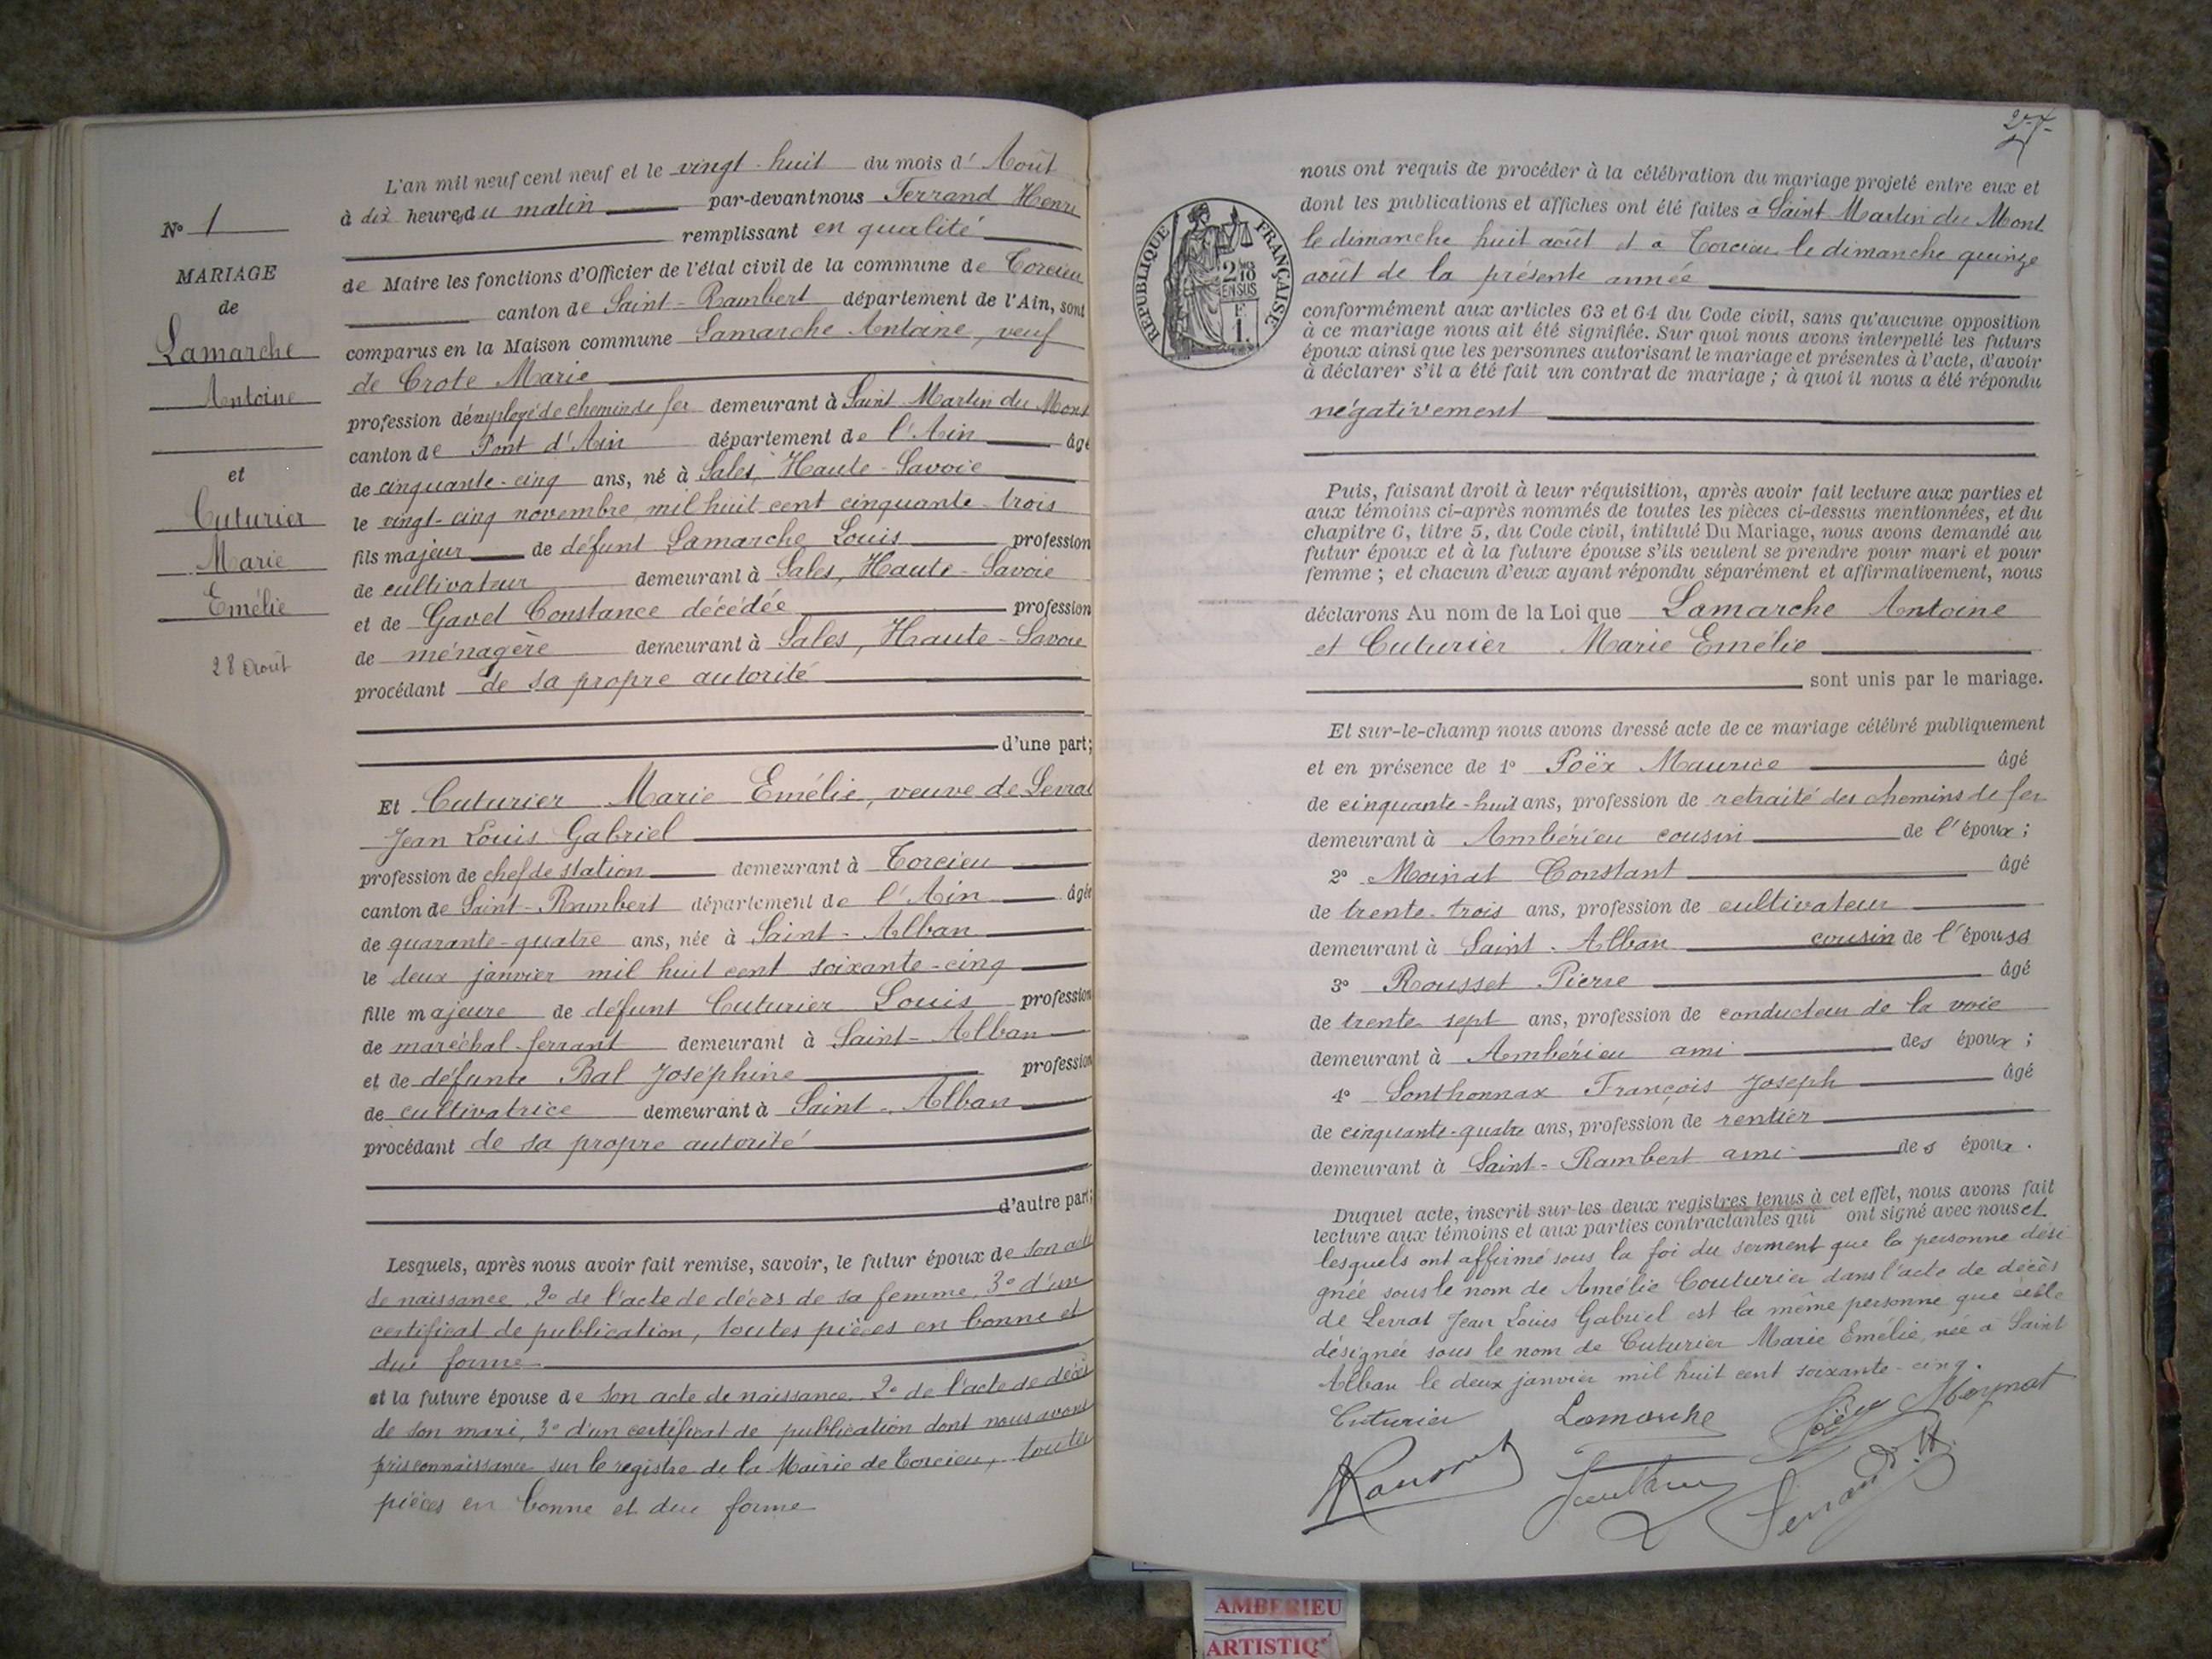 L'an mil neuf cent neuf et le vingt-huit du mois d'Août
à dix heures du matin par-devant nous Ferrand Henri
remplissant en qualité
de Maire les fonctions d'Officier de l'état civil de la commune de Torcieu
canton de Saint-Rambert département de l'Ain, sont
comparus en la Maison commune Lamarche Antoine, veuf
de Crote Marie
profession d'employé de chemin de fer demeurant à Saint Martin du Mont
canton de Pont d'Ain département de l'Ain âgé
de cinquante-cinq ans, né à Sales, Haute-Savoie
le vingt-cinq novembre mil huit cent cinquante-trois
fils majeur de défunt Lamarche Louis profession
de cultivateur demeurant à Sales, Haute-Savoie
et de Gavel Constance décédée profession
de ménagère demeurant à Sales, Haute-Savoie
procédant de sa propre autorité
d'une part;
Et Cuturier Marie Emélie, veuve de Serrat
Jean Louis Gabriel
profession de chef de station demeurant à Torcieu
canton de Saint-Rambert département de l'Ain âgée
de quarante-quatre ans, née à Saint-Alban
le deux janvier mil huit cent soixante-cinq
fille majeure de défunt Cuturier Louis profession
de maréchal-ferrant demeurant à Saint-Alban
et de défunte Bal Joséphine profession
de cultivatrice demeurant à Saint-Alban
procédant de sa propre autorité
d'autre part;
Lesquels, après nous avoir fait remise, savoir, le futur époux de son acte
de naissance 2° de l'acte de décès de sa femme, 3° d'un
certificat de publication, toutes pièces en bonne et
due forme
et la future épouse de son acte de naissance 2° de l'acte de décès
de son mari, 3° d'un certificat de publication dont nous avons
pris connaissance sur le registre de la Mairie de Torcieu, toutes
pièces en bonne et due forme
N° 1
MARIAGE
de
Lamarche
Antoine
et
Cuturier
Marie
Emélie
28 Août
27
nous ont requis de procéder à la célébration du mariage projeté entre eux et
dont les publications et affiches ont été faites à Saint Martin du Mont
le dimanche huit août et à Torcieu le dimanche quinze
août de la présente année
conformément aux articles 63 et 64 du Code civil, sans qu'aucune opposition
à ce mariage nous ait été signifiée. Sur quoi nous avons interpellé les futurs
époux ainsi que les personnes autorisant le mariage et présentes à l'acte, d'avoir
à déclarer s'il a été fait un contrat de mariage; à quoi il nous a été répondu
négativement
Puis, faisant droit à leur réquisition, après avoir fait lecture aux parties et
aux témoins ci-après nommés de toutes les pièces ci-dessus mentionnées, et du
chapitre 6, titre 5, du Code civil, intitulé Du Mariage, nous avons demandé au
futur époux et à la future épouse s'ils veulent se prendre pour mari et pour
femme; et chacun d'eux ayant répondu séparément et affirmativement, nous
déclarons Au nom de la Loi que Lamarche Antoine
et Cuturier Marie Emélie
sont unis par le mariage.
Et sur-le-champ nous avons dressé acte de ce mariage célébré publiquement
et en présence de 1° Poëx Maurice âgé
de cinquante-huit ans, profession de retraité des chemins de fer
demeurant à Ambérieu cousin de l'époux;
2° Moinat Constant âgé
de trente-trois ans, profession de cultivateur
demeurant à Saint-Alban cousin de l'épouse
3° Rousset Pierre âgé
de trente-sept ans, profession de conducteur de la voie
demeurant à Ambérieu ami des époux;
4° Sonthonnax François Joseph âgé
de cinquante-quatre ans, profession de rentier
demeurant à Saint-Rambert ami des époux.
Duquel acte, inscrit sur les deux registres tenus à cet effet, nous avons fait
lecture aux témoins et aux parties contractantes qui ont signé avec nous et
lesquels ont affirmé sous la foi du serment que la personne dési-
gnée sous le nom de Amélie Couturier dans l'acte de décès
de Serrat Jean Louis Gabriel est la même personne que celle
désignée sous le nom de Cuturier Marie Emélie, née à Saint
Alban le deux janvier mil huit cent soixante-cinq.
Cuturier Lamarche Poëx Moynat
Rousset Ferrand H.
RÉPUBLIQUE FRANÇAISE
AMBERIEU
ARTISTIQ